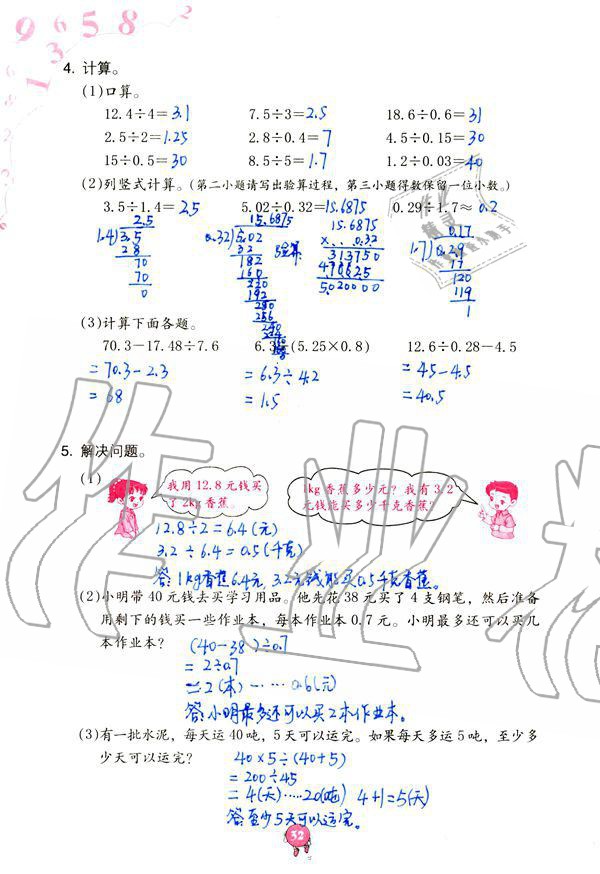 9 6 5 8
1 3
4. 计算。
(1)口算。
12.4÷4=3.1 7.5÷3=2.5 18.6÷0.6=31
2.5÷2=1.25 2.8÷0.4=7 4.5÷0.15=30
15÷0.5=30 8.5÷5=1.7 1.2÷0.03=40
(2)列竖式计算。(第二小题请写出验算过程，第三小题得数保留一位小数。)
3.5÷1.4=2.5 5.02÷0.32=15.6875 0.29÷1.7≈0.2
2.5 15.6875 15.6875 0.17
1.4)3.5 0.32)5.02 验算 × 0.32 1.7)0.29
28 32 313750 17
70 182 470625 120
70 160 5.020000 119
0 220 1
192
280
256
240
(3)计算下面各题。
70.3-17.48÷7.6 6.3÷(5.25×0.8) 12.6÷0.28-4.5
=70.3-2.3 =6.3÷4.2 =45-4.5
=68 =1.5 =40.5
5. 解决问题。
(1)
我用12.8元钱买了2kg香蕉。
1kg香蕉多少元？我有3.2元钱能买多少千克香蕉？
12.8÷2=6.4(元)
3.2÷6.4=0.5(千克)
答:1kg香蕉6.4元,3.2元钱能买0.5千克香蕉。
(2)小明带40元钱去买学习用品。他先花38元买了4支钢笔，然后准备
用剩下的钱买一些作业本，每本作业本0.7元。小明最多还可以买几
本作业本？ (40-38)÷0.7
=2÷0.7
=2(本)……0.6(元)
答:小明最多还可以买2本作业本。
(3)有一批水泥，每天运40吨，5天可以运完。如果每天多运5吨，至少多
少天可以运完？ 40×5÷(40+5)
=200÷45
=4(天)……20(吨) 4+1=5(天)
答:至少5天可以运完。
32
作业精